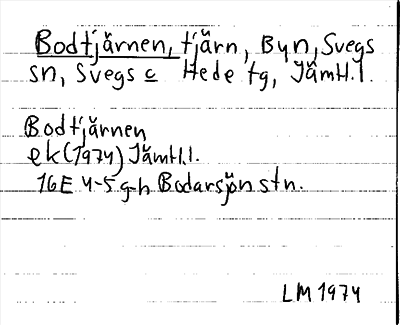 Bodtjärnen, tjärn, Byn, Svegs
sn, Svegs c Hede tg, Jämtl.l.
Bodtjärnen
ek (1974) Jämtl.l.
16E 4-5 g-h Bodarsjön stn.
LM 1974